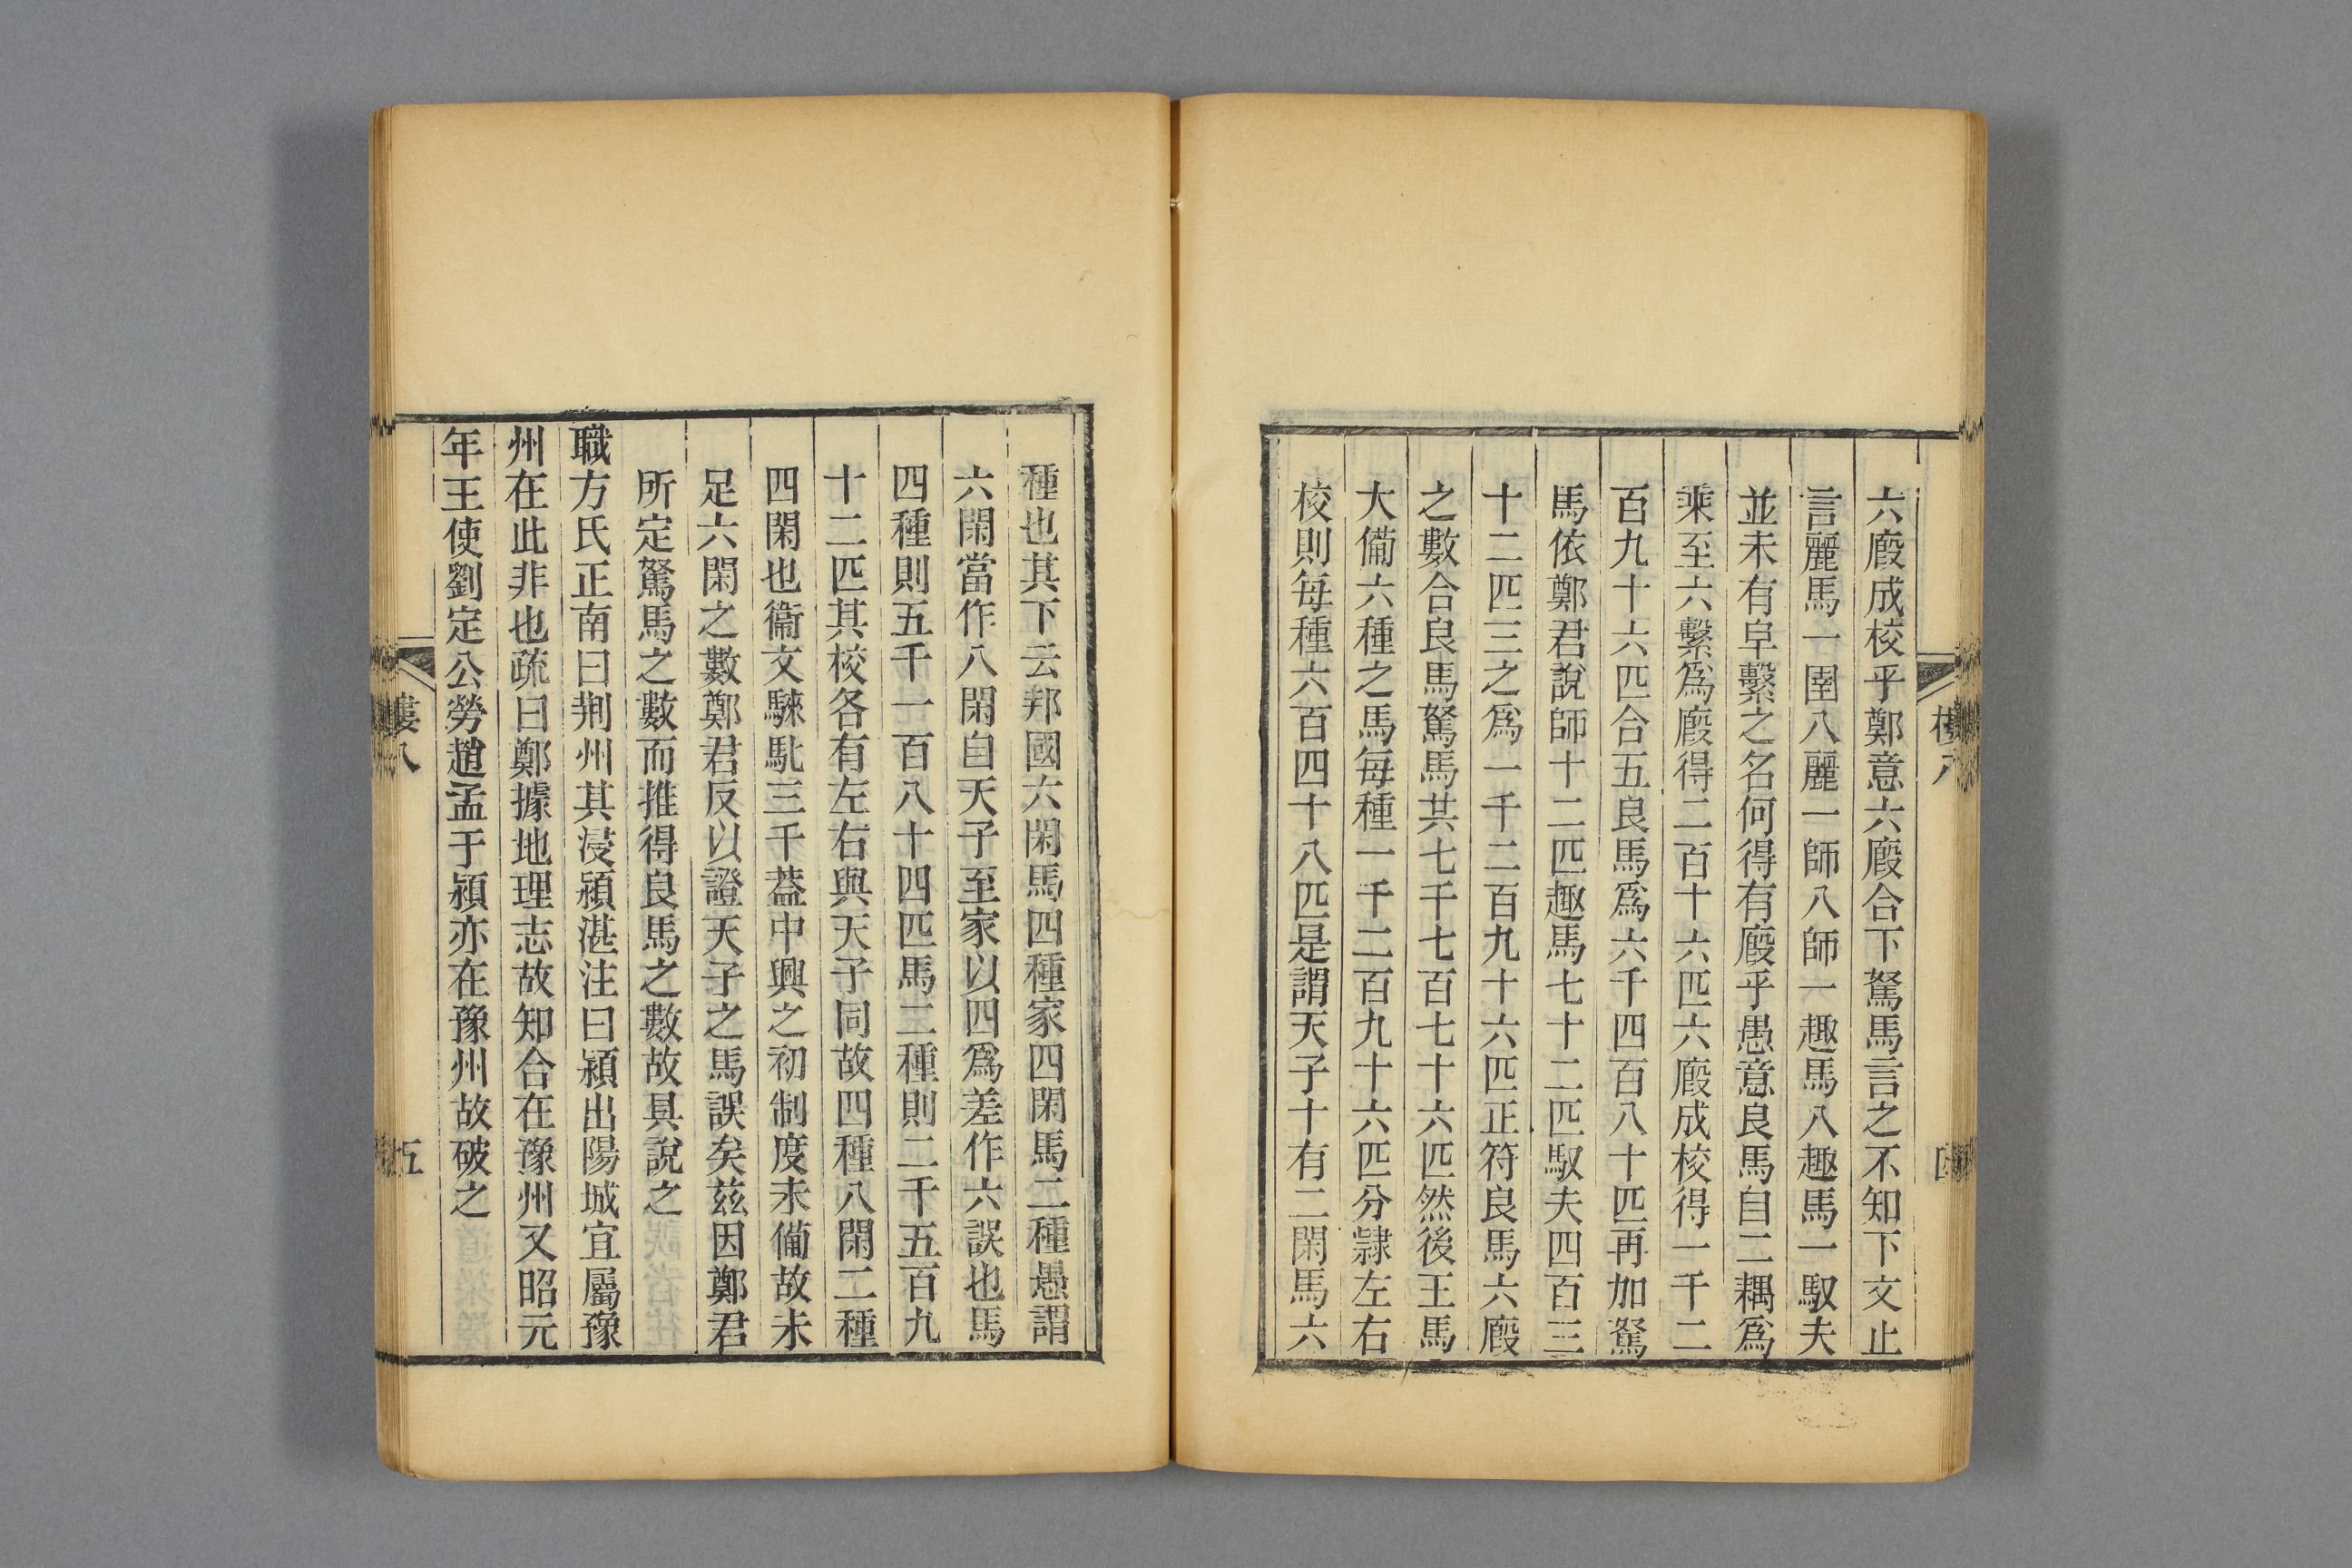 六廄成校乎鄭意六廄合下駑馬言之不知下文止
言麗馬一圉八麗一師八師一趣馬八趣馬一馭夫
並未有皁繫之名何得有廄乎愚意良馬自二耦爲
乘至六繫爲廄得二百十六匹六廄成校得一千二
百九十六匹合五良馬爲六千四百八十匹再加駑
馬依鄭君說師十二匹趣馬七十二匹馭夫四百三
十二匹三之爲一千二百九十六匹正符良馬六廄
之數合良馬駑馬共七千七百七十六匹然後王馬
大僃六種之馬每種一千二百九十六匹分隸左右
校則每種六百四十八匹是謂天子十有二閑馬六
種也其下云邦國六閑馬四種家四閑馬二種愚謂
六閑當作八閑自天子至家以四爲差作六誤也馬
四種則五千一百八十四匹馬二種則二千五百九
十二匹其校各有左右與天子同故四種八閑二種
四閑也衞文騋牝三千葢中興之初制度未僃故未
足六閑之數鄭君反以證天子之馬誤矣茲因鄭君
所定駑馬之數而推得良馬之數故具說之
職方氏正南曰荆州其浸潁湛注曰潁出陽城宜屬豫
州在此非也疏曰鄭據地理志故知合在豫州又昭元
年王使劉定公勞趙孟于潁亦在豫州故破之
八
五